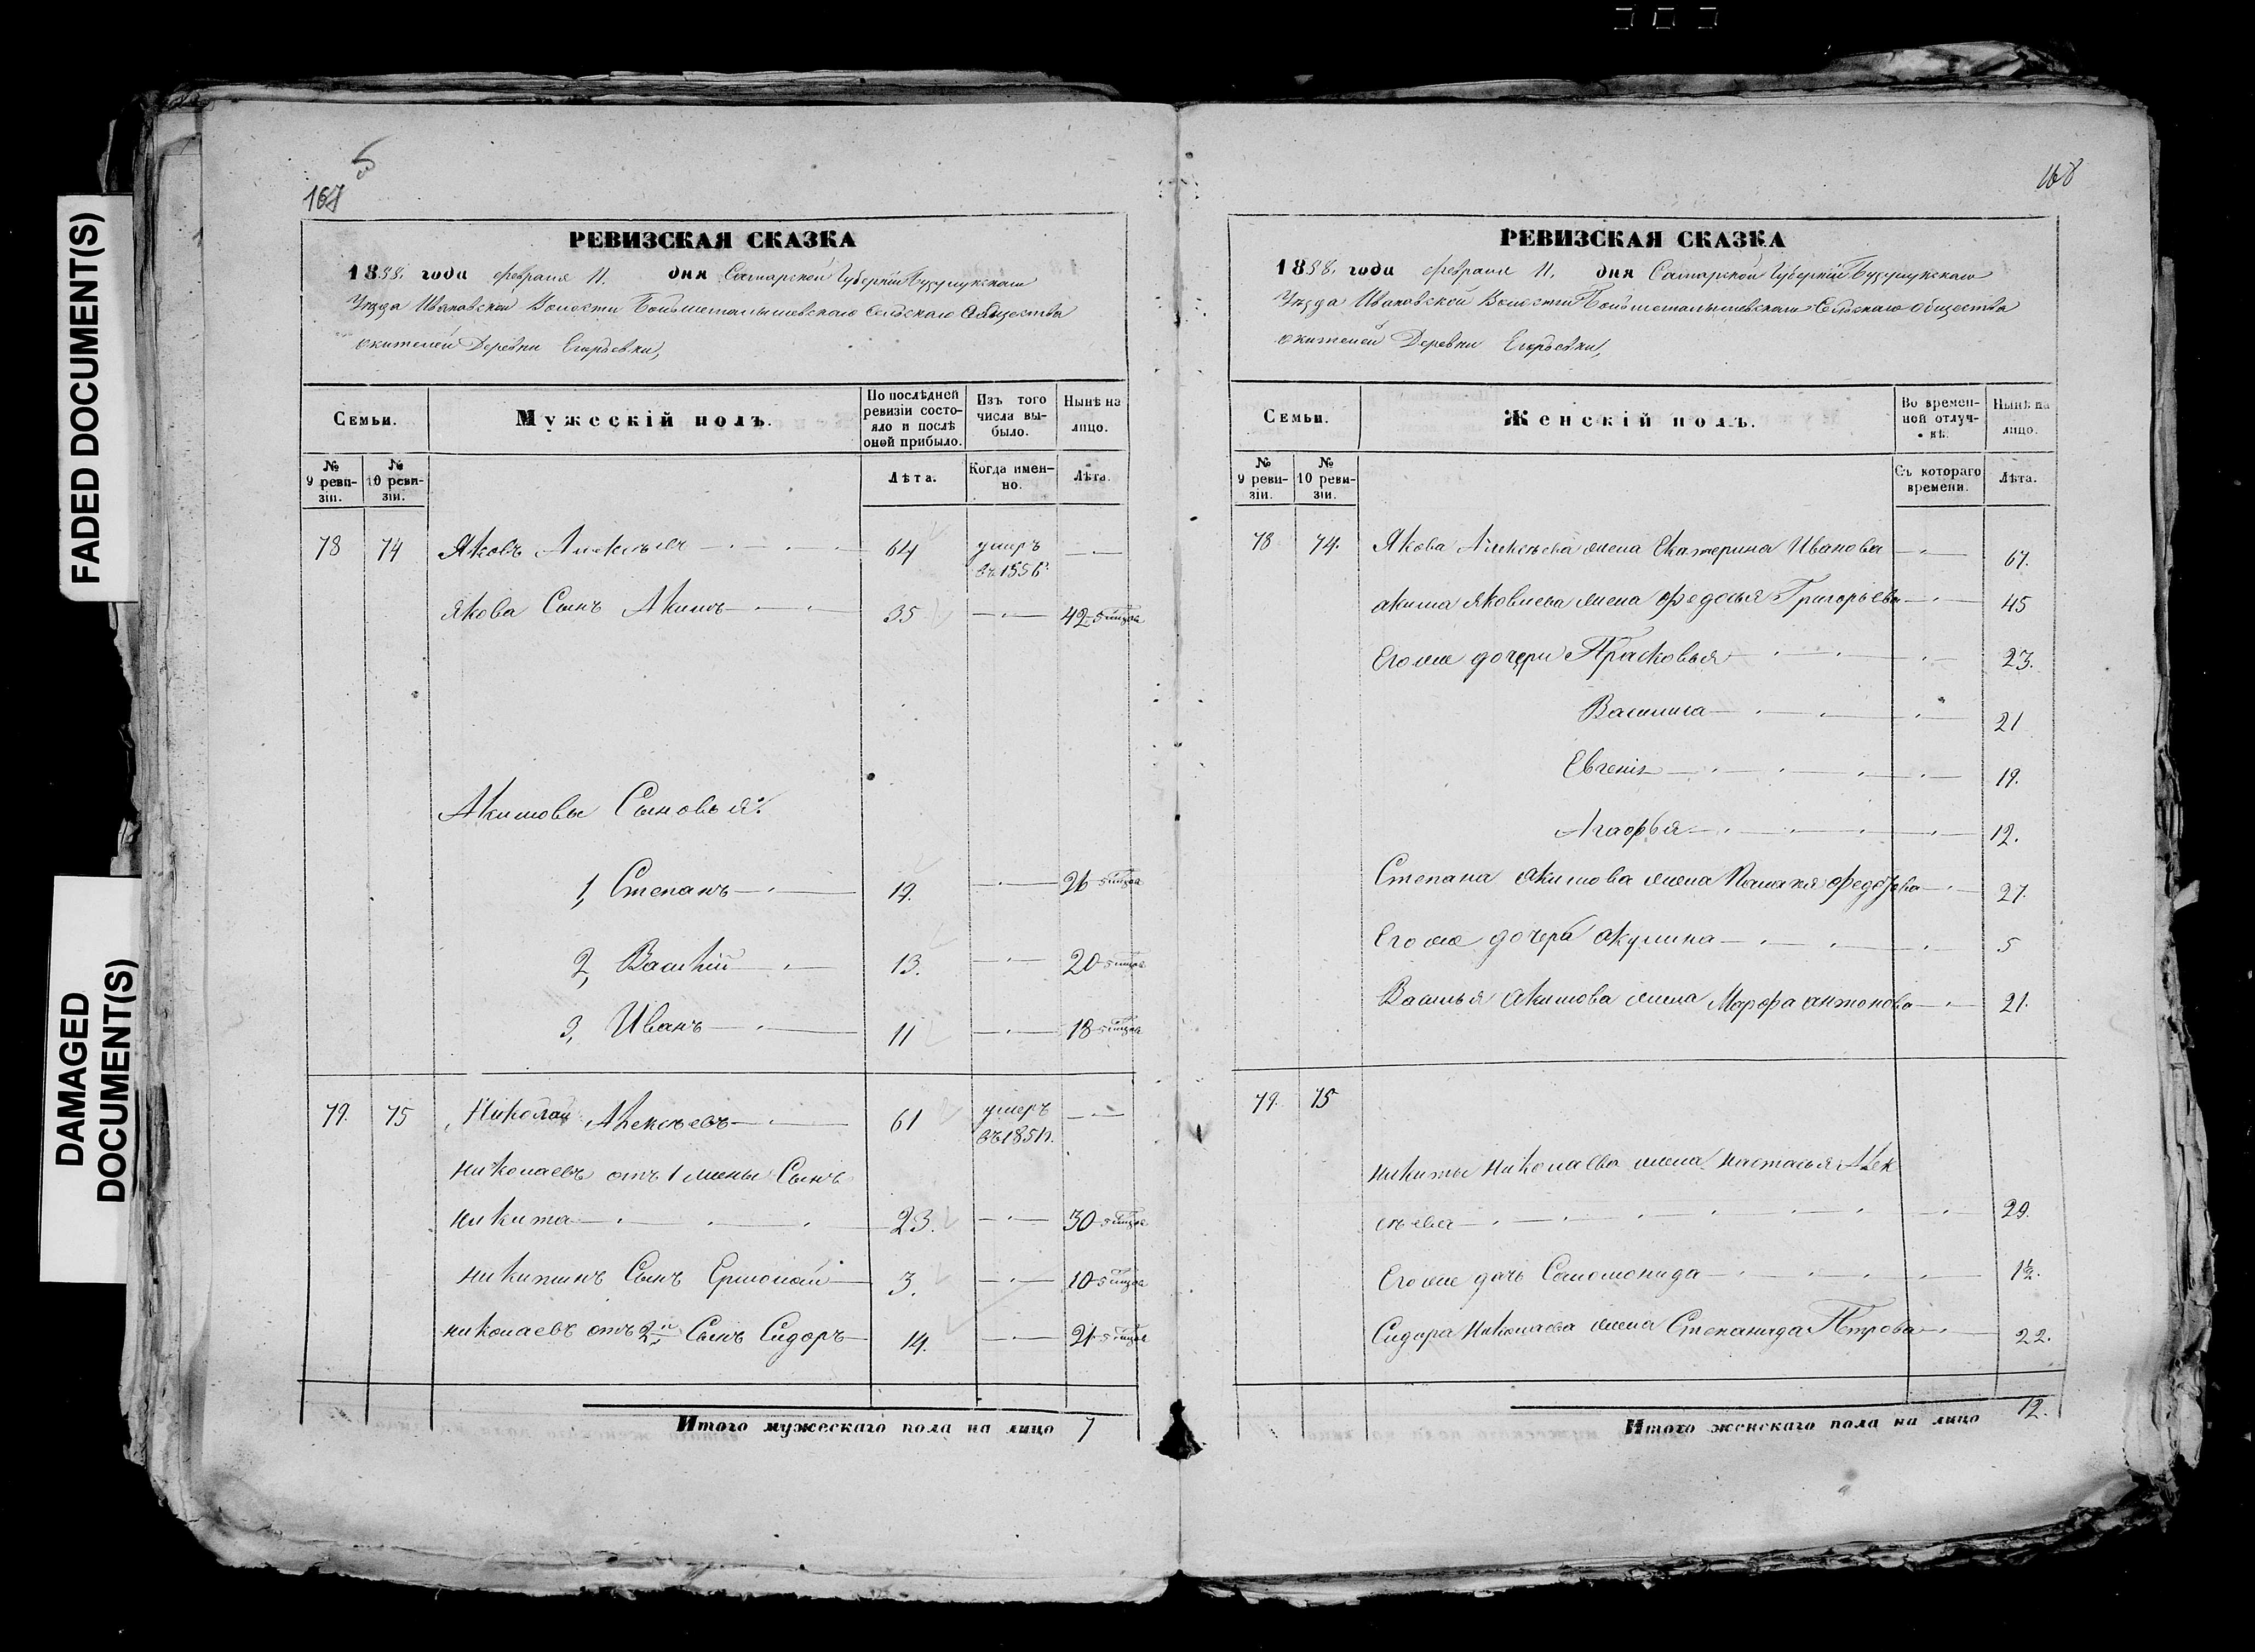 FADED DOCUMENT(S)
DAMAGED
DOCUMENT(S)
5
167
РЕВИЗСКАЯ СКАЗКА
1858. года февраля 11. дня Самарской Губерніи Бузулукскаго
Уезда Ивановской Волости Сельскаго Общества
жителей Деревни Егорьевки,
Семьи.
Мужескій полъ.
По послѣдней ревизіи состояло и послѣ оной прибыло.
Изъ того числа выбыло.
Нынѣ на лицо.
№ 9 ревизіи.
№ 10 ревизіи.
Лѣта.
Когда именно.
Лѣта.
78 74 Яковъ Алексѣевъ 64 умеръ въ 1856г.
Якова Сынъ Акимъ 35 42
Акимовы Сыновья:
1, Степанъ 19. 26
2, Василій 13. 20
3, Иванъ 11 18
79. 75 Николай Алексѣевъ 61 умеръ
николаевъ отъ 1 жены Сынъ
никита 23. 30
никитинъ Сынъ Ермолай 3. 10
николаевъ отъ 2й Сынъ Сидоръ 14. 21
Итого мужескаго пола на лицо 7
168
РЕВИЗСКАЯ СКАЗКА
1858. года февраля 11. дня Самарской Губерніи Бузулукскаго
Уезда Ивановской Волости Сельскаго Общества
жителей Деревни Егорьевки,
Семьи.
Женскій полъ.
Во временной отлучкѣ.
Нынѣ на лицо.
№ 9 ревизіи.
№ 10 ревизіи.
Съ котораго времени.
Лѣта.
78 74. Якова Алексѣева жена Екатерина Иванова 67.
акима Яковлева жена федосья Григорьева 45
Его же дочери Прасковья 23.
Василиса 21
Евгенія 19.
Агафья 12.
Степана акимова жена федорова 27.
Его же дочерь акулина 5
Василья акимова жена Марфа антонова 21.
79. 75
никиты николаева жена настасья Алек
сѣева 29.
Его же дочь Соломонида 1½.
Сидора Николаева жена Степанида Петрова 22.
Итого женскаго пола на лицо 12.